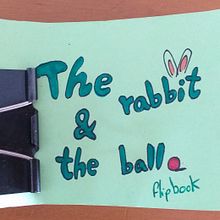 The
rabbit
&
the ball
flipbook